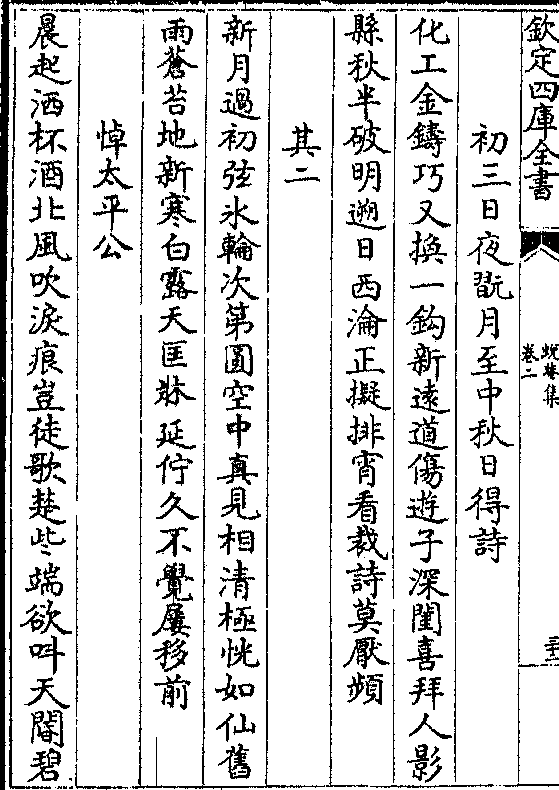 欽定四庫全書
蛻菴集
卷二
初三日夜翫月至中秋日得詩
化工金鑄巧又換一鈎新遠道傷遊子深閨喜拜人影
縣秋半破明遡日西淪正擬排宵看裁詩莫厭頻
其二
新月過初弦氷輪次第圓空中真見相清極恍如仙舊
雨蒼苔地新寒白露天匡牀延佇久不覺屨移前
悼太平公
晨起洒杯酒北風吹淚痕豈徒歌楚些端欲叫天閽碧